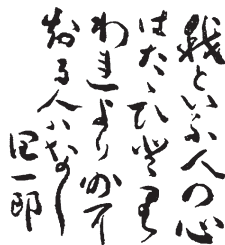 我という人の心
はたゝひとり
われより外に
知る人はなし
潤一郎